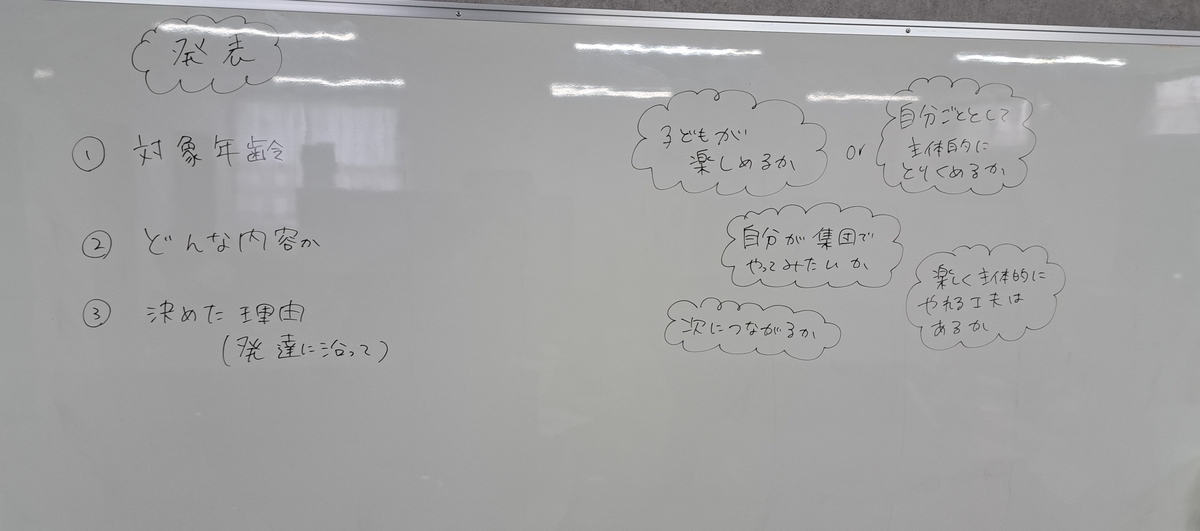 発表
① 対象年齢
② どんな内容か
③ 決めた理由
(発達に沿って)
子どもが
楽しめるか
or
自分ごととして
主体的に
とりくめるか
自分が集団で
やってみたいか
次につながるか
楽しく主体的に
やれる工夫は
あるか